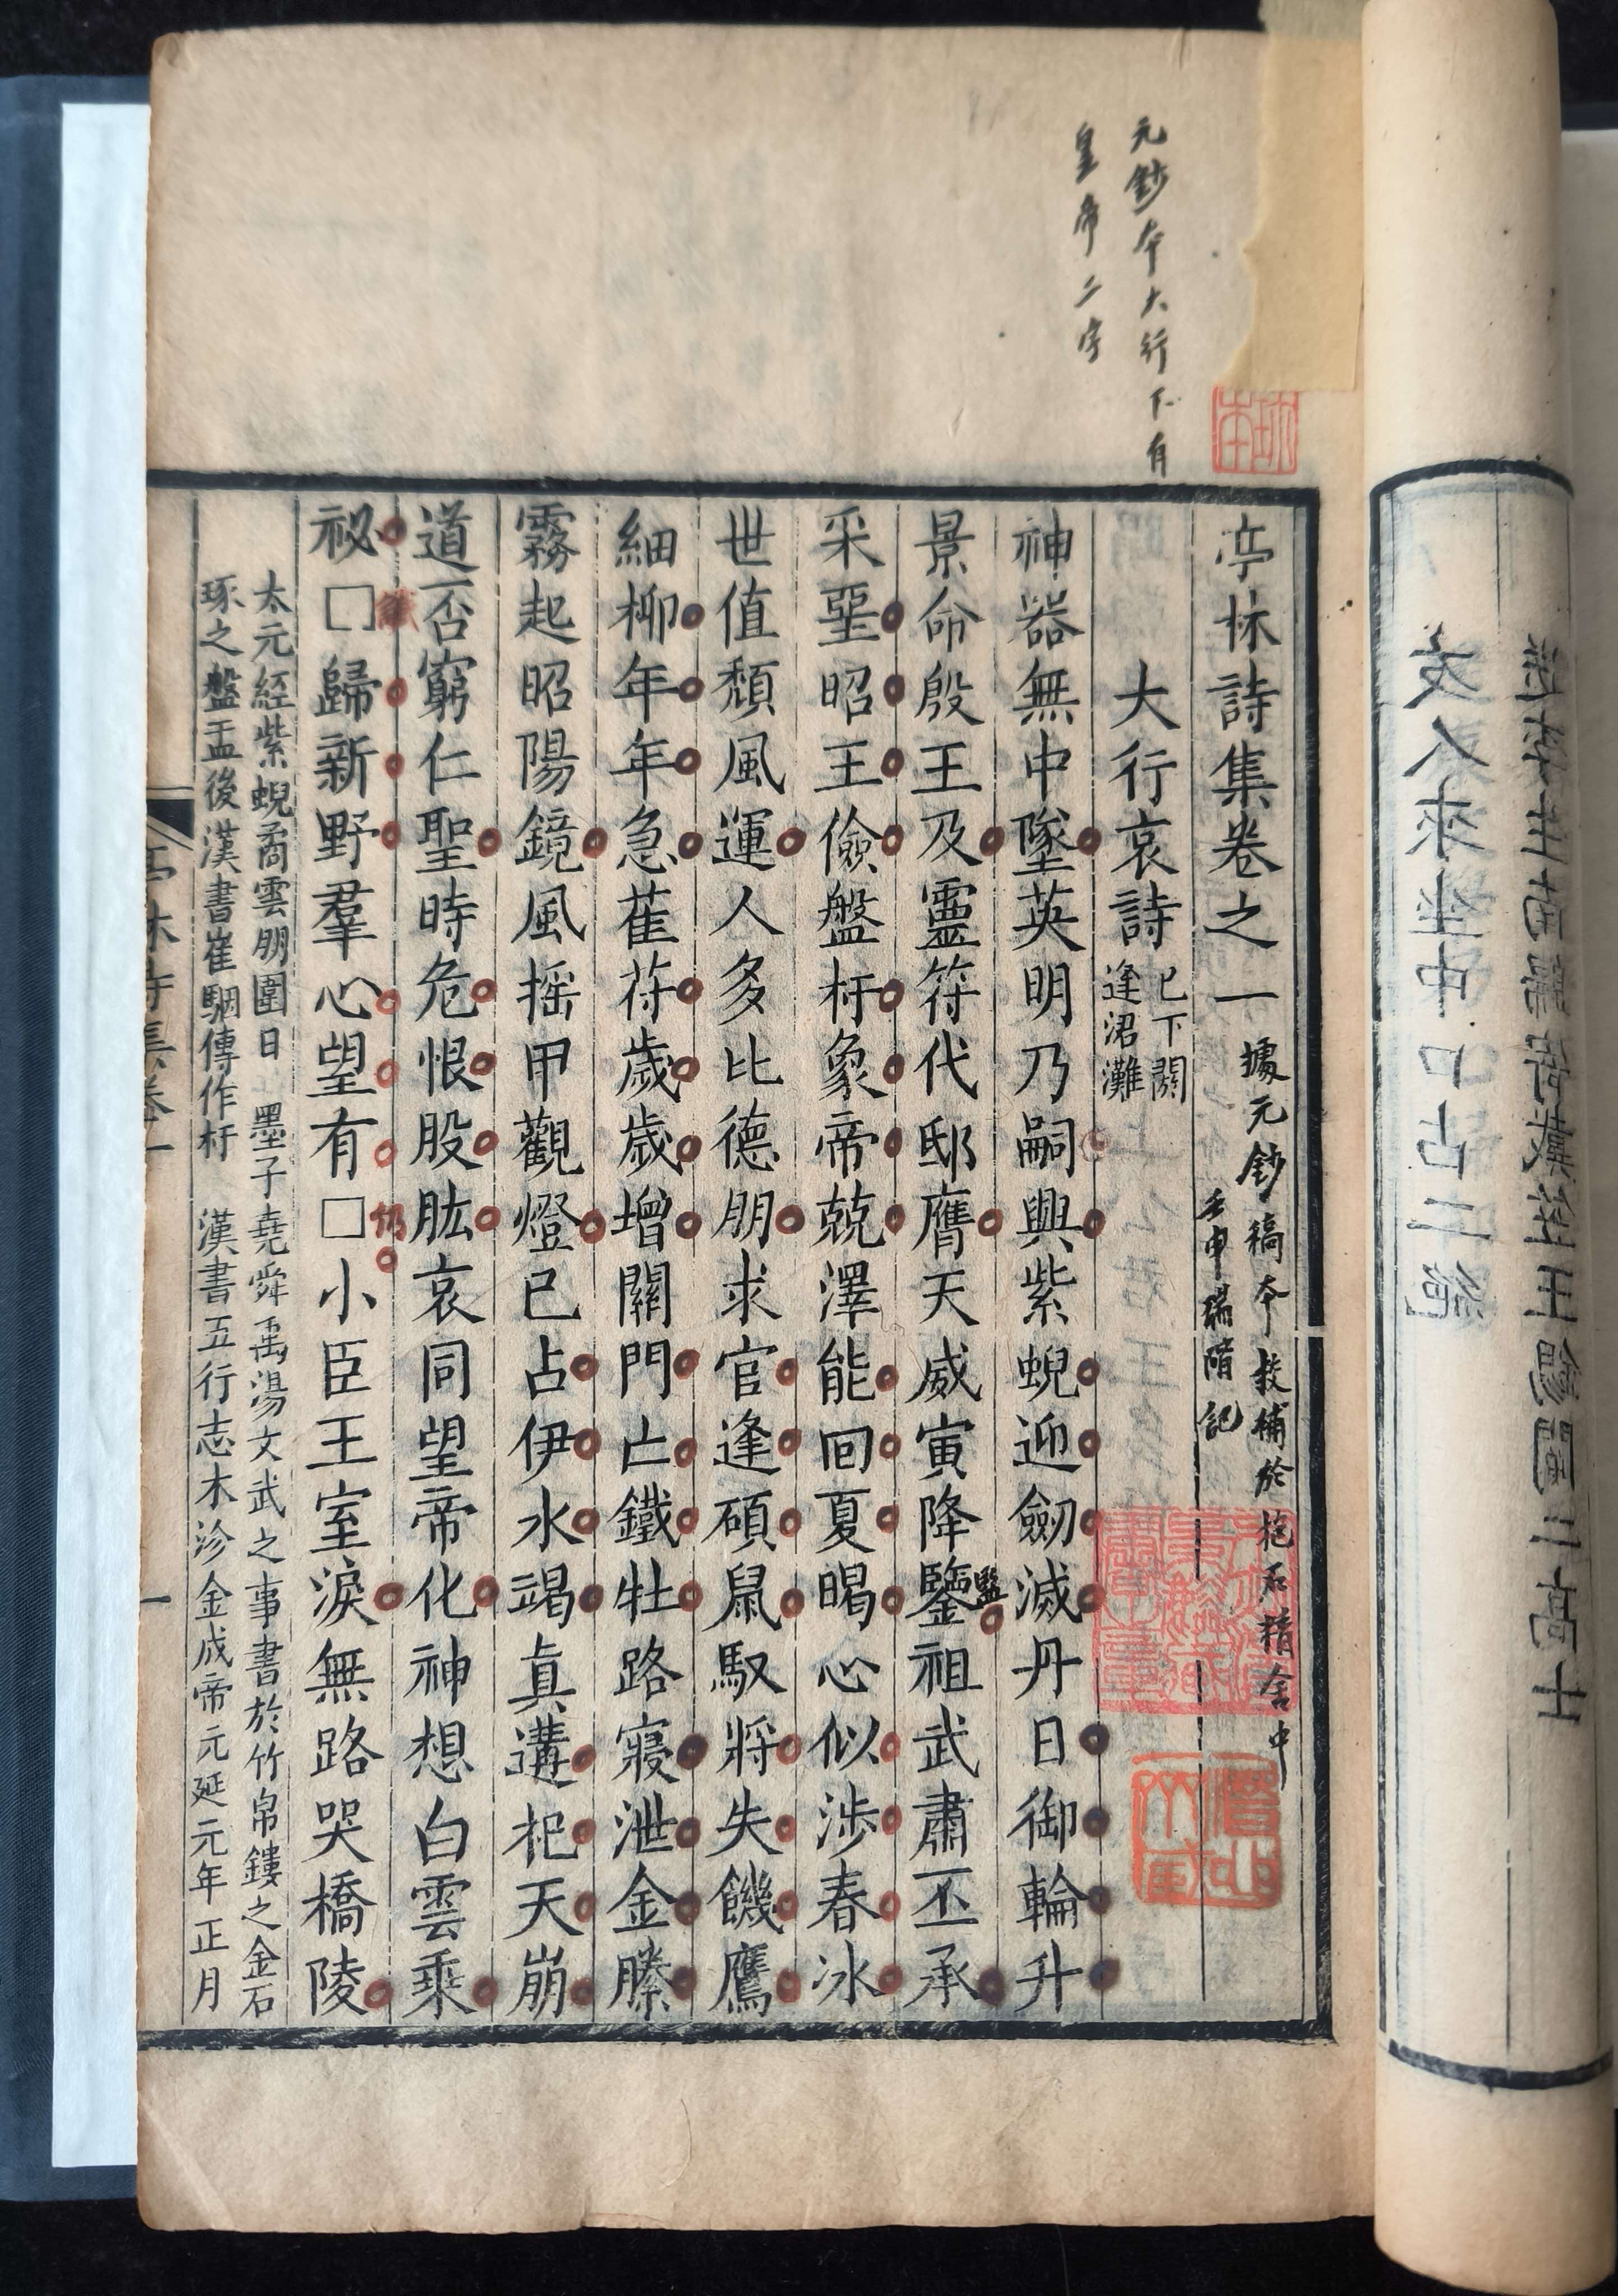 元鈔本大行下有
皇帝二字
亭林詩集卷之一
據元鈔稿本校補於抱石精舍中
壬申 記
大行哀詩
已下閼
逢涒灘
神器無中墜英明乃嗣興紫蜺迎劒滅丹日御輪升
景命殷王及靈符代邸膺天威寅降鑒祖武肅丕承
監
采堊昭王儉盤杅象帝兢澤能回夏暍心似涉春冰
世值頹風運人多比德朋求官逢碩鼠馭將失饑鷹
細柳年年急萑苻歲歲增關門亡鐵牡路寢泄金縢
霧起昭陽鏡風摇甲觀燈已占伊水竭真遘杞天崩
道否窮仁聖時危恨股肱哀同望帝化神想白雲乘
祕□歸新野羣心望有□小臣王室淚無路哭橋陵
讖
仍
太元經紫蜺矞雲朋圍日 墨子堯舜禹湯文武之事書於竹帛鏤之金石
琢之盤盂後漢書崔駰傳作杅 漢書五行志木沴金成帝元延元年正月
亭林詩集卷一
一
友人來坐中口占二絕